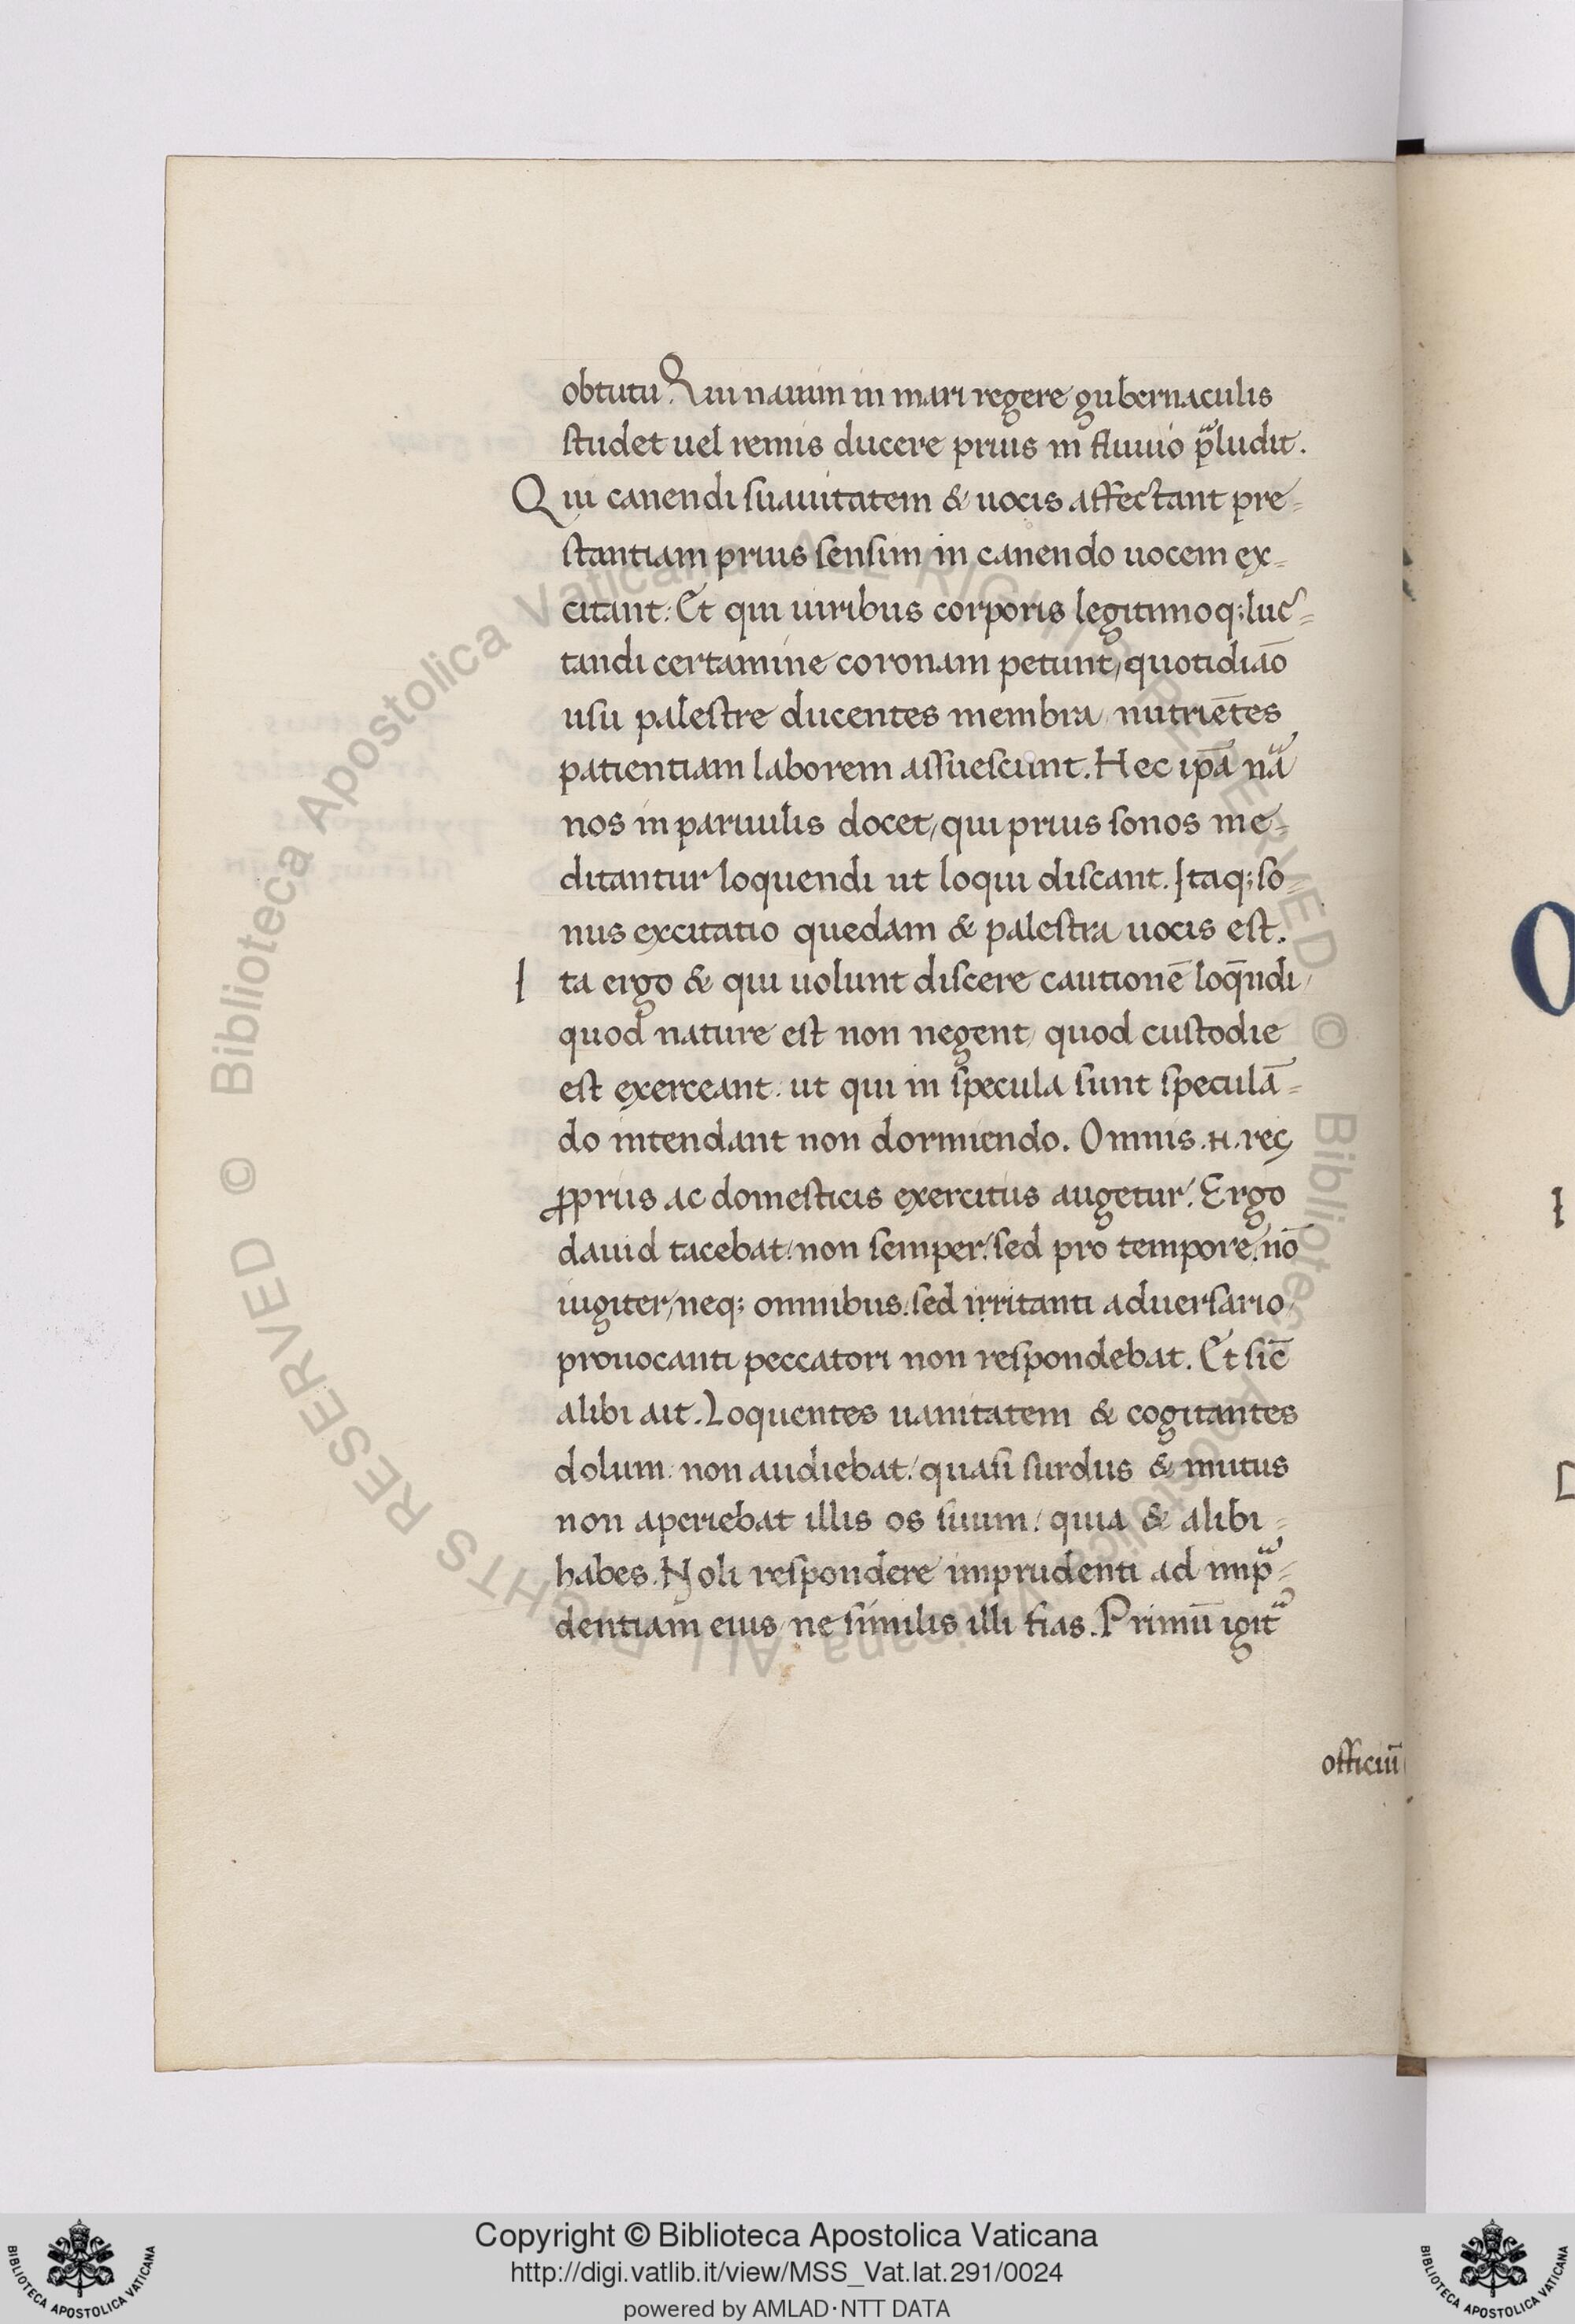 obtutu. Qui nauim in mari regere gubernaculis
studet uel remis ducere prius in fluuio p̃ludit.
Qui canendi suauitatem & uocis affectant pre-
stantiam prius sensim in canendo uocem ex-
citant: Et qui uiribus corporis legitimoq; luc-
tandi certamine coronam petunt, quotidiāo
usu palestre ducentes membra nutriētes
patientiam laborem assuescunt. Hec ip̄a nã
nos in paruulis docet, qui prius sonos me-
ditantur loquendi ut loqui discant. Itaq; so-
nus excitatio quedam & palestra uocis est.
Ita ergo & qui uolunt discere cautionē loq̄ndi/
quod nature est non negent/ quod custodie
est exerceant: ut qui in specula sunt speculā-
do intendant non dormiendo. Omnis .n. res
ꝓprius ac domesticis exercitus augetur. Ergo
dauid tacebat: non semper: sed pro tempore: nō
iugiter, neq; omnibus: sed irritanti aduersario/
prouocanti peccatori non respondebat. Et sic̄
alibi ait. Loquentes uanitatem & cogitantes
dolum: non audiebat: quasi surdus & mutus
non aperiebat illis os suum: quia & alibi -
habes. Noli respondere imprudenti ad imp̃-
dentiam eius/ ne similis illi fias. Primū igit᷑
officiū
O
I
Copyright © Biblioteca Apostolica Vaticana
http://digi.vatlib.it/view/MSS_Vat.lat.291/0024
powered by AMLAD·NTT DATA
BIBLIOTECA APOSTOLICA VATICANA
BIBLIOTECA APOSTOLICA VATICANA
© Biblioteca Apostolica Vaticana ALL RIGHTS RESERVED © Biblioteca Apostolica Vaticana ALL RIGHTS RESERVED